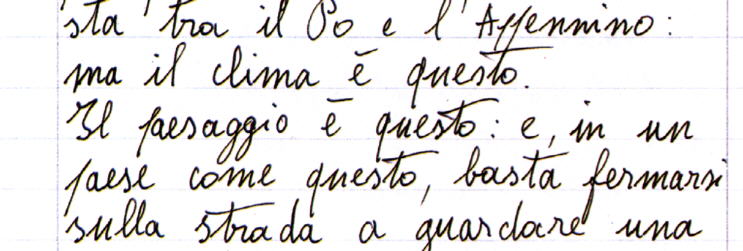 sta tra il Po e l'Appennino:
ma il clima è questo.
Il paesaggio è questo: e, in un
paese come questo, basta fermarsi
sulla strada a guardare una